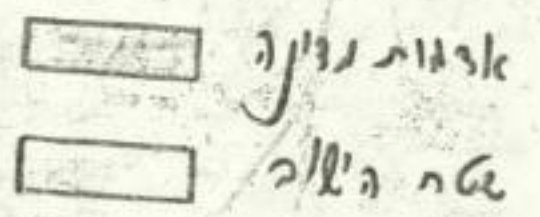 אדמות מדינה
שטח הישוב